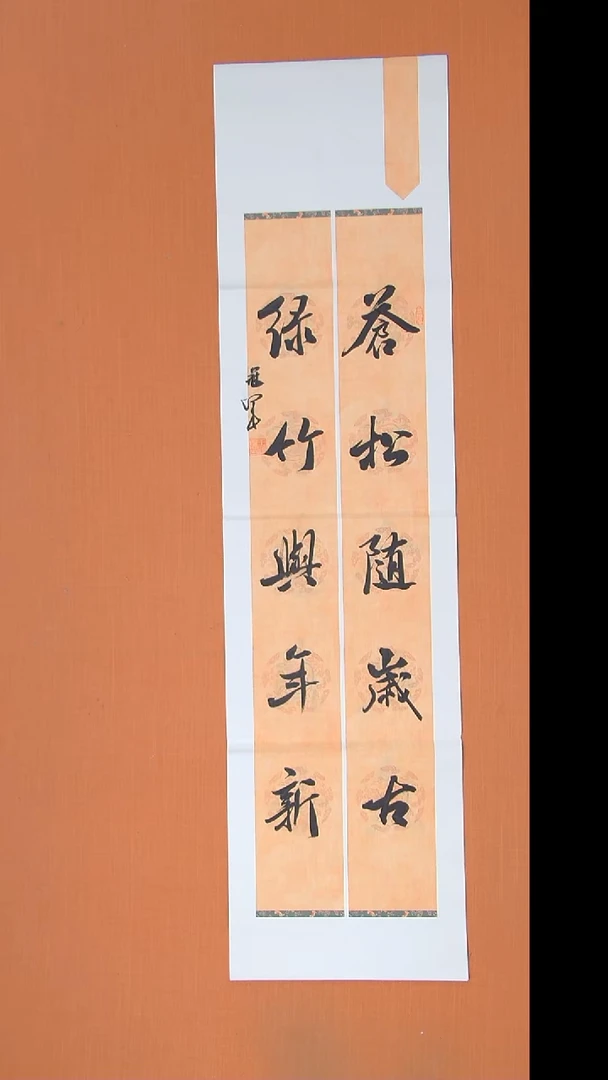 蒼松随歲古
绿竹與年新